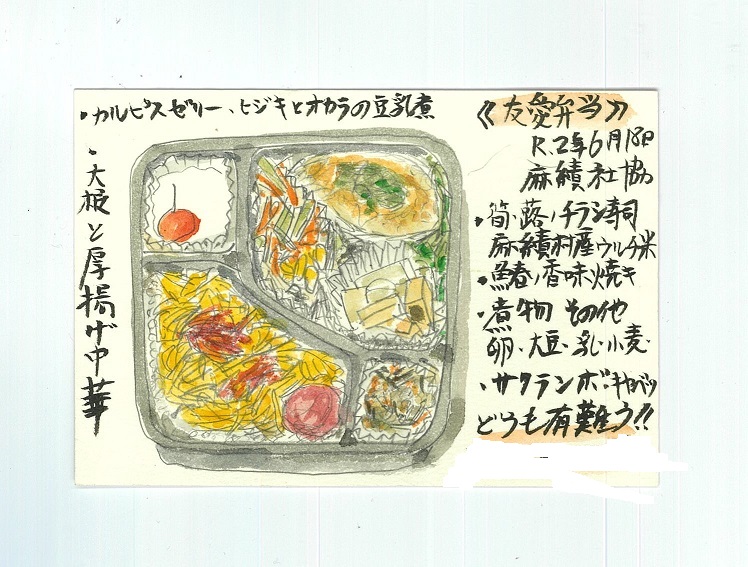 ・カルピスゼリー、ヒジキとオカラの豆乳煮
・大根と厚揚げ中華
《友愛弁当》
R.2年6月18日
麻績社協
・筍・蕗ノチラシ寿司
麻績村産ウルチ米
・鰆ノ香味焼き
・煮物 その他
卵・大豆・乳・小麦・
・サクランボ・キャベツ
どうも有難う!!